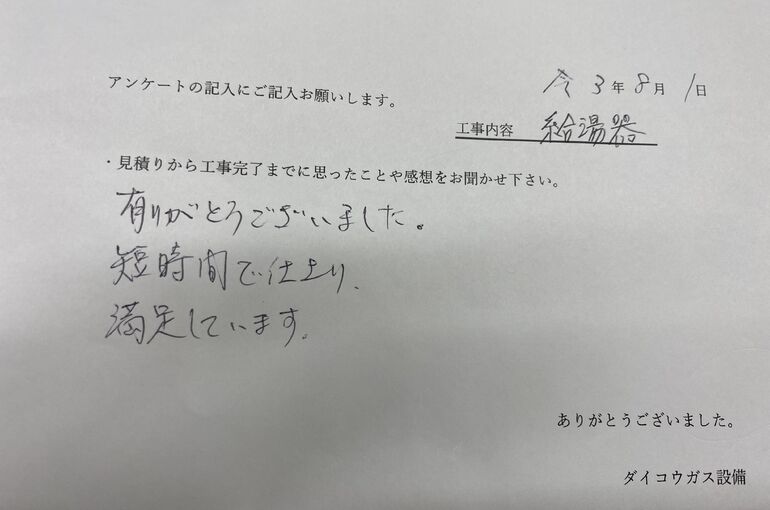 令3年8月1日
アンケートの記入にご記入お願いします。
工事内容 給湯器
・見積りから工事完了までに思ったことや感想をお聞かせ下さい。
有りがとうございました。
短時間で仕上り、
満足しています。
ありがとうございました。
ダイコウガス設備